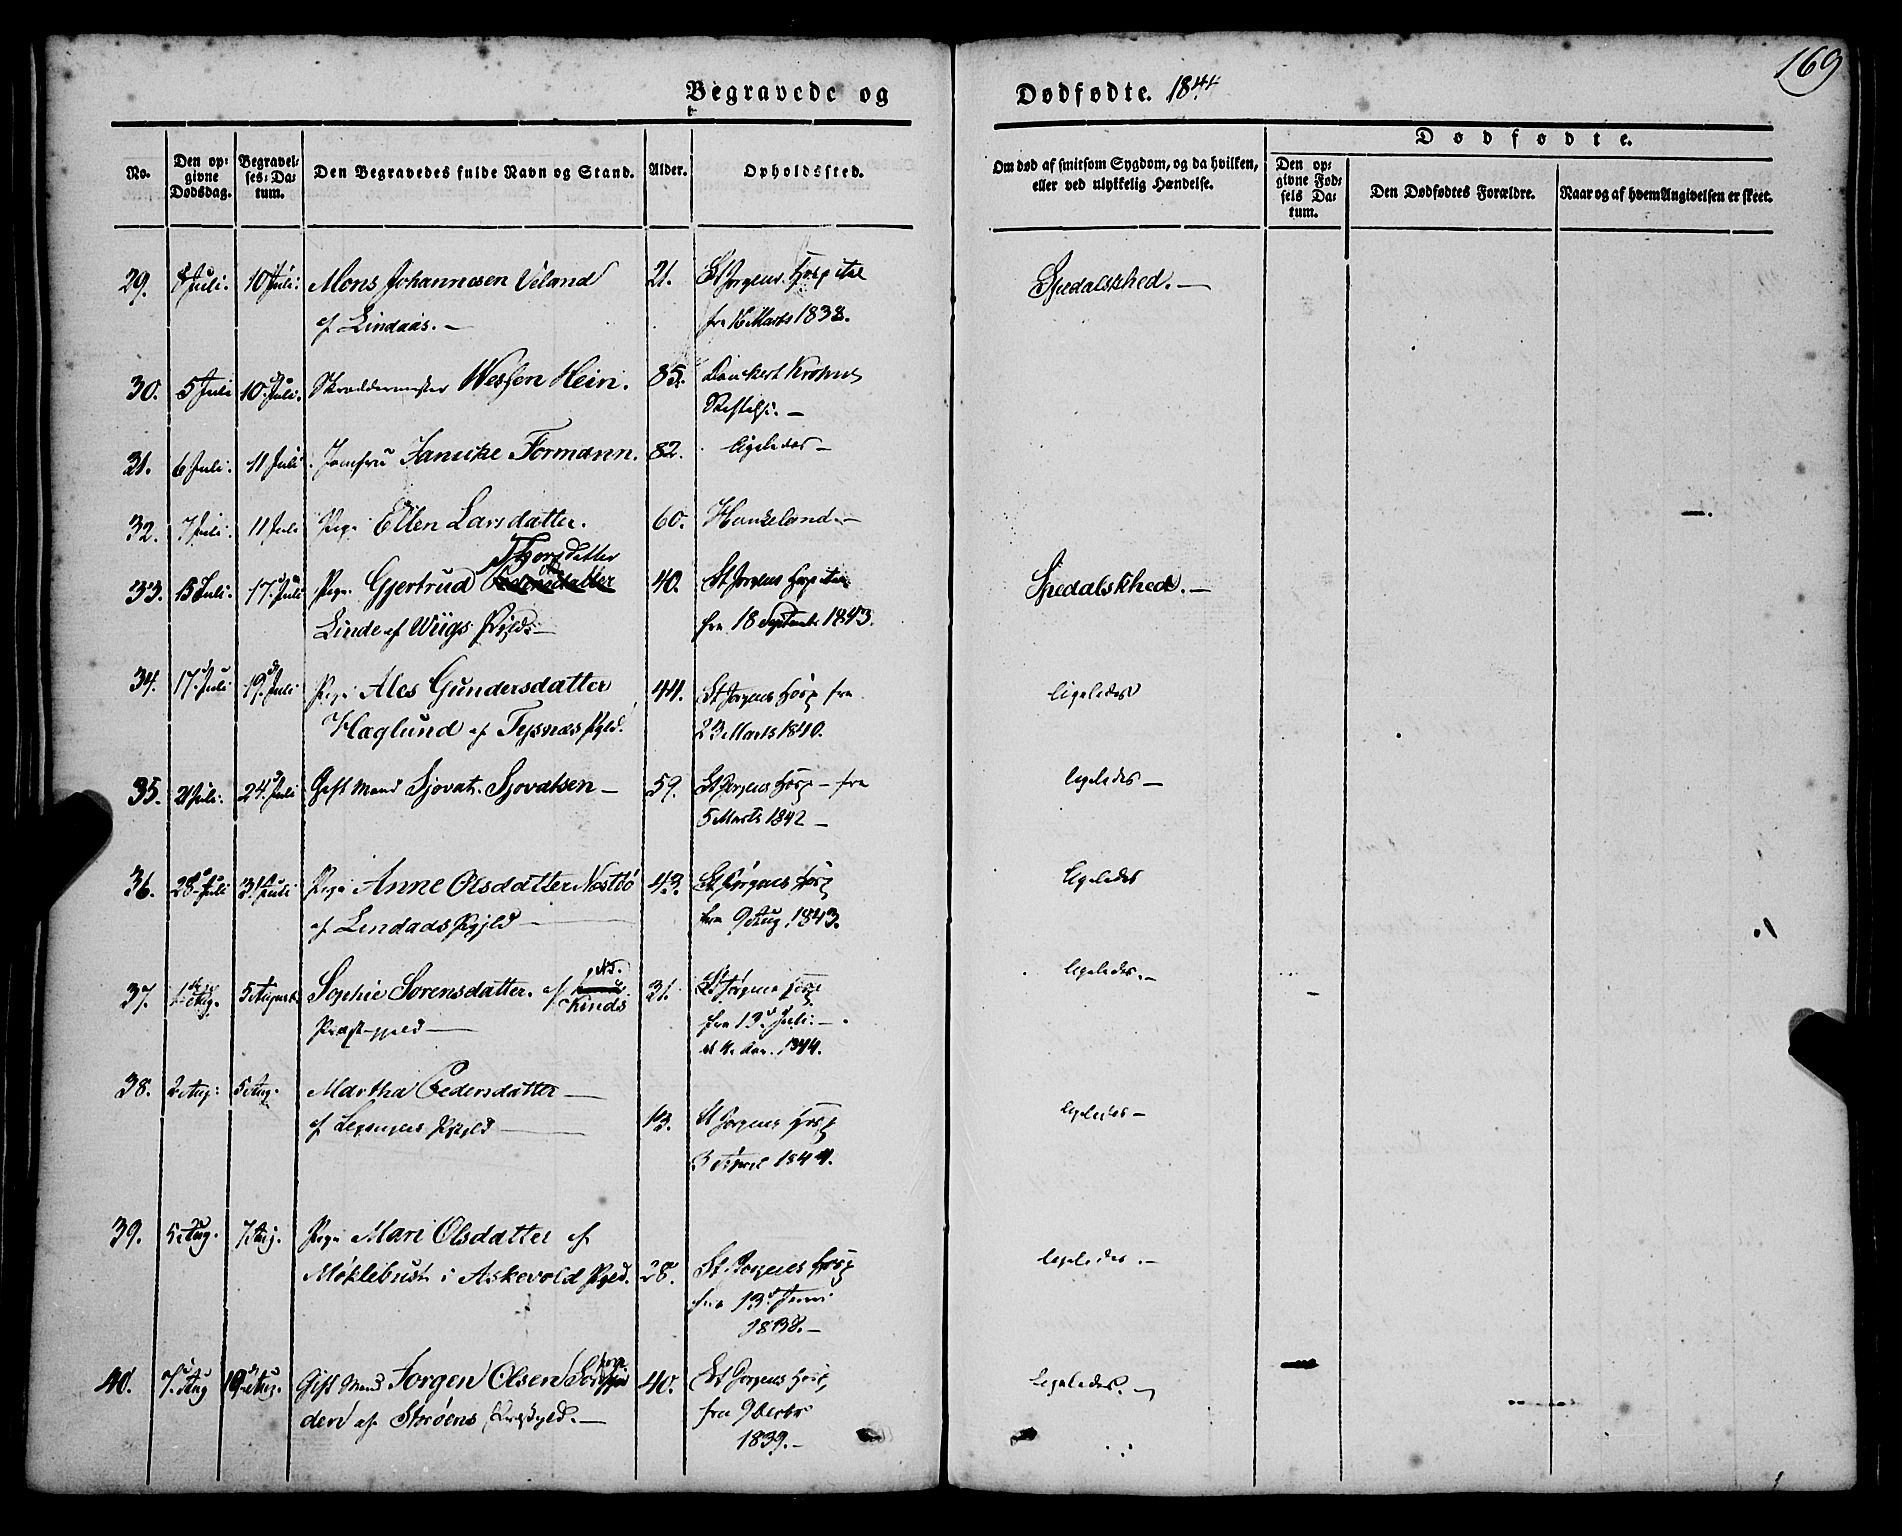 169
Begravede og Dødfødte. 1844
No.
Den opgivne Dødsdag.
Begravelses-Datum.
Den Begravedes fulde Navn og Stand.
Alder.
Opholdssted.
Om død af smitsom Sygdom, og da hvilken, eller ved ulykkelig Hændelse.
Dødfødte.
Den opgivne Fødsels Datum.
Den Dødfødtes Forældre.
Naar og af hvem Angivelsen er skeet.
29. 8 Juli. 10 Juli. Mons Johannesen Veland 21. St Jørgens Hospital Spedalskhed. —
af Lindaas. — fra 16 Marts 1838.
30. 5 Juli 10. Juli. Skreddermester Wessen Hein. 85. Danckert Krohns
Stiftelse. —
31. 6 Juli. 11 Juli. Jomfru Janicke Formann. 82. ligeledes —
32. 7 Juli. 11 Juli Pige Ellen Larsdatter. 60. Haukeland. —
Thorsdatter
33. 13 Juli. 17. Juli Pige Gjertrud 40. St Jørgens Hospital Spedalskhed. —
Linde af Wiigs Prgjld. — fra 18 Septemb. 1843.
34. 17. Juli 19. Juli Pige Ales Gundersdatter 44. St Jørgens Hosp fra ligeledes
Haglund af Tysnæs Pgld. 23 Marts 1840.
35. 21 Juli. 24. Juli Gift Mand Sjovat Sjovatsen — 59. St Jørgens Hosp — fra ligeledes —
5 Marts 1842 —
36. 28 Juli 31 Juli Pige Anne Olsdatter Nøstbø 43. St Jørgens Hosp ligeledes
af Lindaas Prgjld — fra 9 Aug 1843.
37. 1 Aug. 5 August Sophie Sørensdatter. af Kinds 31. St Jørgens Hosp ligeledes. —
Præstegjeld — fra 13 Juli. —
1844.
38. 2 Aug: 5 Aug. Martha Pedersdatter —
af Prgjeld — 13. St Jørgens Hosp ligeledes —
3 April 1844.
39. 5 Aug. 7 Aug. Pige Mari Olsdatter af
Møklebust i Askevold Pgld. 28. St Jørgens Hosp ligeledes. —
fra 13 Juni
1838. —
40. 7. Aug 10 Aug. Gift Mand Jørgen Olsen 40. St Jørgens Hosp ligeledes. —
den af Strøens Præstgjeld. — fra 9 Decbr
1839. —